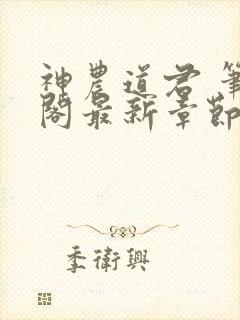 神農道君 筆
閣最新章節
季衛興